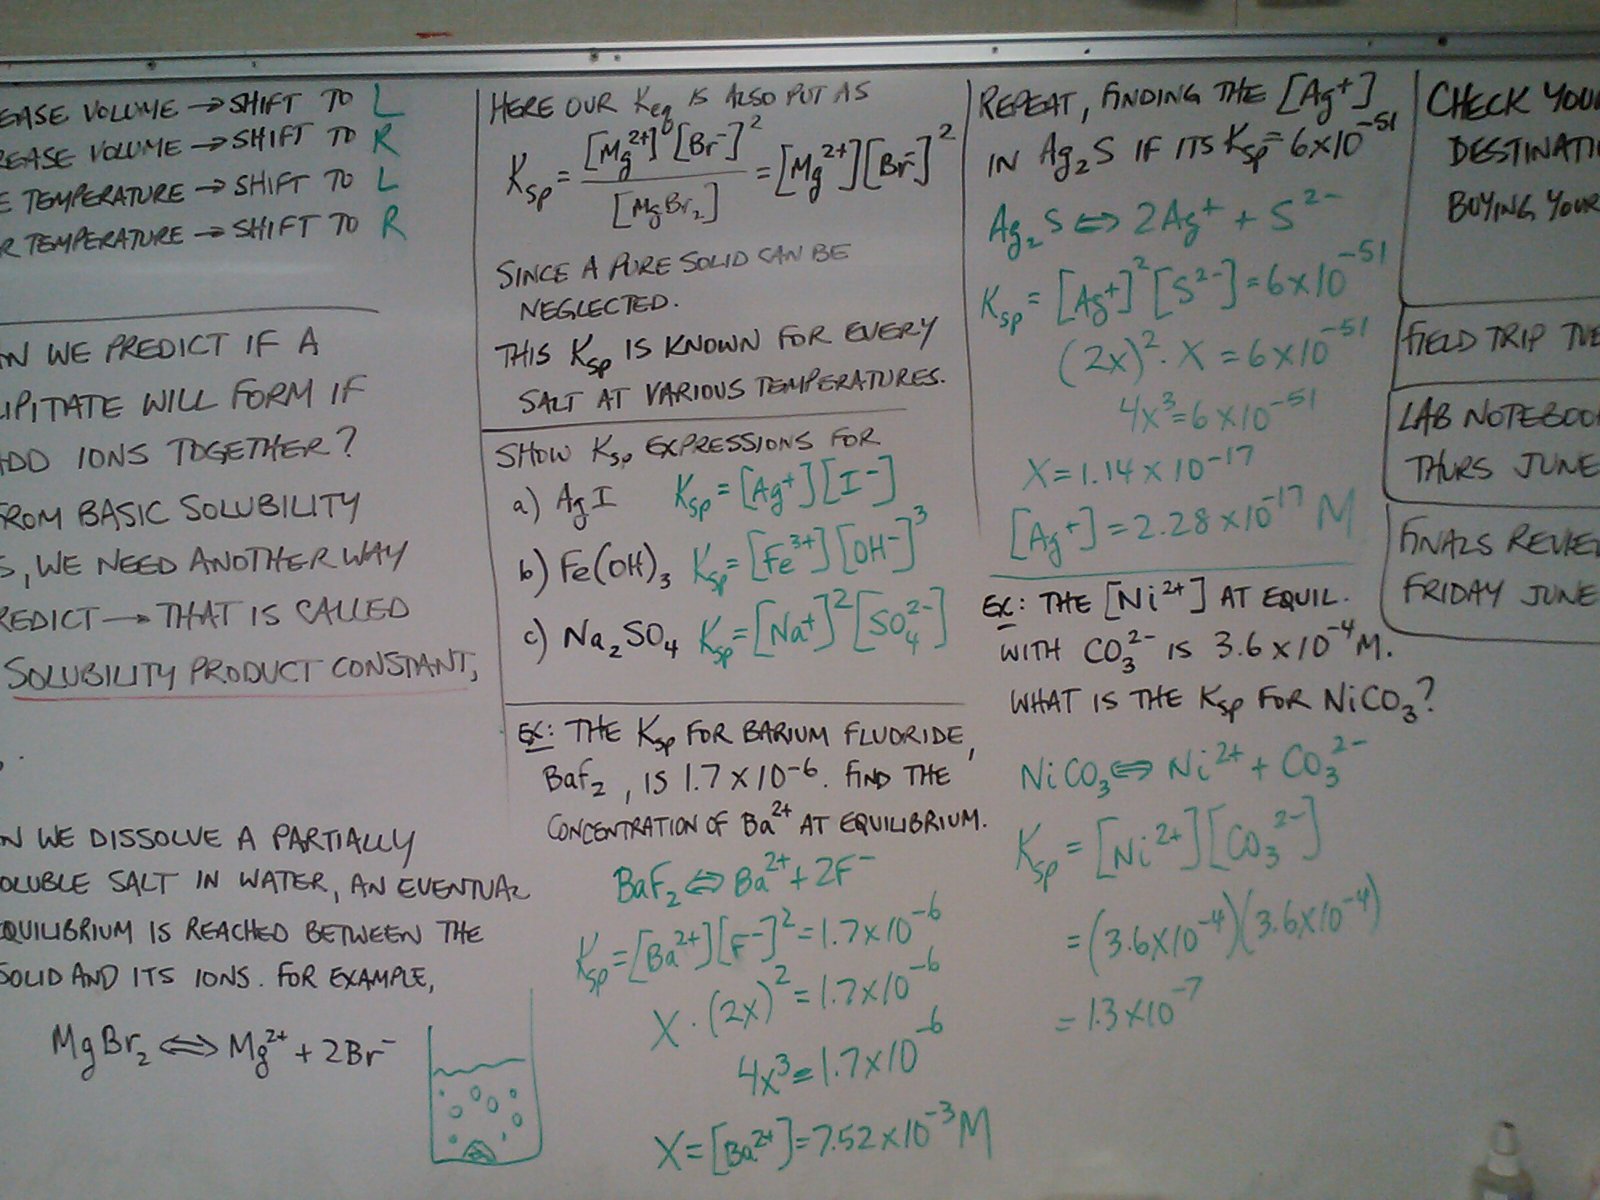 EASE VOLUME → SHIFT TO L
REASE VOLUME → SHIFT TO R
E TEMPERATURE → SHIFT TO L
R TEMPERATURE → SHIFT TO R
N WE PREDICT IF A
IPITATE WILL FORM IF
ADD IONS TOGETHER?
FROM BASIC SOLUBILITY
S, WE NEED ANOTHER WAY
REDICT → THAT IS CALLED
SOLUBILITY PRODUCT CONSTANT,
N WE DISSOLVE A PARTIALLY
OLUBLE SALT IN WATER, AN EVENTUAL
EQUILIBRIUM IS REACHED BETWEEN THE
SOLID AND ITS IONS. FOR EXAMPLE,
MgBr₂ ⇔ Mg²⁺ + 2Br⁻
HERE OUR Keq IS ALSO PUT AS
Ksp = [Mg²⁺][Br⁻]² / [MgBr₂] = [Mg²⁺][Br⁻]²
SINCE A PURE SOLID CAN BE
NEGLECTED.
THIS Ksp IS KNOWN FOR EVERY
SALT AT VARIOUS TEMPERATURES.
SHOW Ksp EXPRESSIONS FOR
a) AgI Ksp = [Ag⁺][I⁻]
b) Fe(OH)₃ Ksp = [Fe³⁺][OH⁻]³
c) Na₂SO₄ Ksp = [Na⁺]²[SO₄²⁻]
EX: THE Ksp FOR BARIUM FLUORIDE,
BaF₂, IS 1.7 x 10⁻⁶. FIND THE
CONCENTRATION OF Ba²⁺ AT EQUILIBRIUM.
BaF₂ ⇔ Ba²⁺ + 2F⁻
Ksp = [Ba²⁺][F⁻]² = 1.7x10⁻⁶
X · (2x)² = 1.7x10⁻⁶
4x³ = 1.7x10⁻⁶
X = [Ba²⁺] = 7.52x10⁻³ M
REPEAT, FINDING THE [Ag⁺]
IN Ag₂S IF ITS Ksp = 6x10⁻⁵¹
Ag₂S ⇔ 2Ag⁺ + S²⁻
Ksp = [Ag⁺]²[S²⁻] = 6x10⁻⁵¹
(2x)² · X = 6x10⁻⁵¹
4x³ = 6x10⁻⁵¹
X = 1.14x10⁻¹⁷
[Ag⁺] = 2.28x10⁻¹⁷ M
EX: THE [Ni²⁺] AT EQUIL.
WITH CO₃²⁻ IS 3.6x10⁻⁴ M.
WHAT IS THE Ksp FOR NiCO₃?
NiCO₃ ⇔ Ni²⁺ + CO₃²⁻
Ksp = [Ni²⁺][CO₃²⁻]
= (3.6x10⁻⁴)(3.6x10⁻⁴)
= 1.3x10⁻⁷
CHECK YOU
DESTINATI
BUYING YOUR
FIELD TRIP TUE
LAB NOTEBOO
THURS JUNE
FINALS REVIE
FRIDAY JUNE